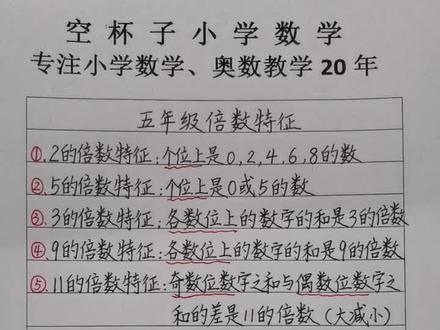 空杯子小学数学
专注小学数学、奥数教学20年
五年级倍数特征
①.2的倍数特征:个位上是0,2,4,6,8的数
②.5的倍数特征:个位上是0或5的数
③.3的倍数特征:各数位上的数字的和是3的倍数
④.9的倍数特征:各数位上的数字的和是9的倍数
⑤.11的倍数特征:奇数位数字之和与偶数位数字之
和的差是11的倍数(大减小)